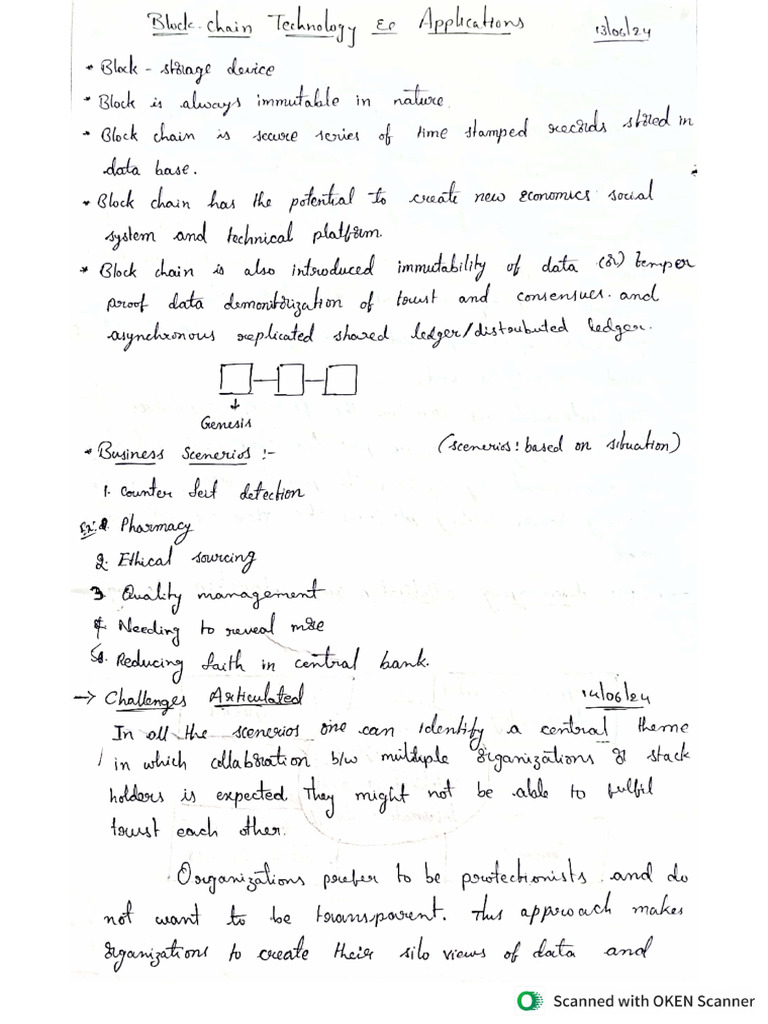 Block chain Technology & Applications
13/06/24
* Block - storage device
* Block is always immutable in nature.
* Block chain is secure series of time stamped records stored in
data base.
* Block chain has the potential to create new economics social
system and technical platform.
* Block chain is also introduced immutability of data (or) temper
proof data demonitorization of trust and consensues. and
asynchronous replicated shared ledger/distributed ledger.
Genesis
* Business Scenerios :-
(scenerios: based on situation)
1. Counter feit detection
Ex: Pharmacy
2. Ethical sourcing
3 Quality management
4 Needing to reveal more
5. Reducing faith in central bank.
→ Challenges Articulated
14/06/24
In all the scenerios one can identify a central theme
in which collabration b/w multiple organizations & stack
holders is expected. They might not be able to fulfil
trust each other.
Organizations prefer to be protectionists and do
not want to be transparent. This approach makes
organizations to create their silo views of data and
Scanned with OKEN Scanner